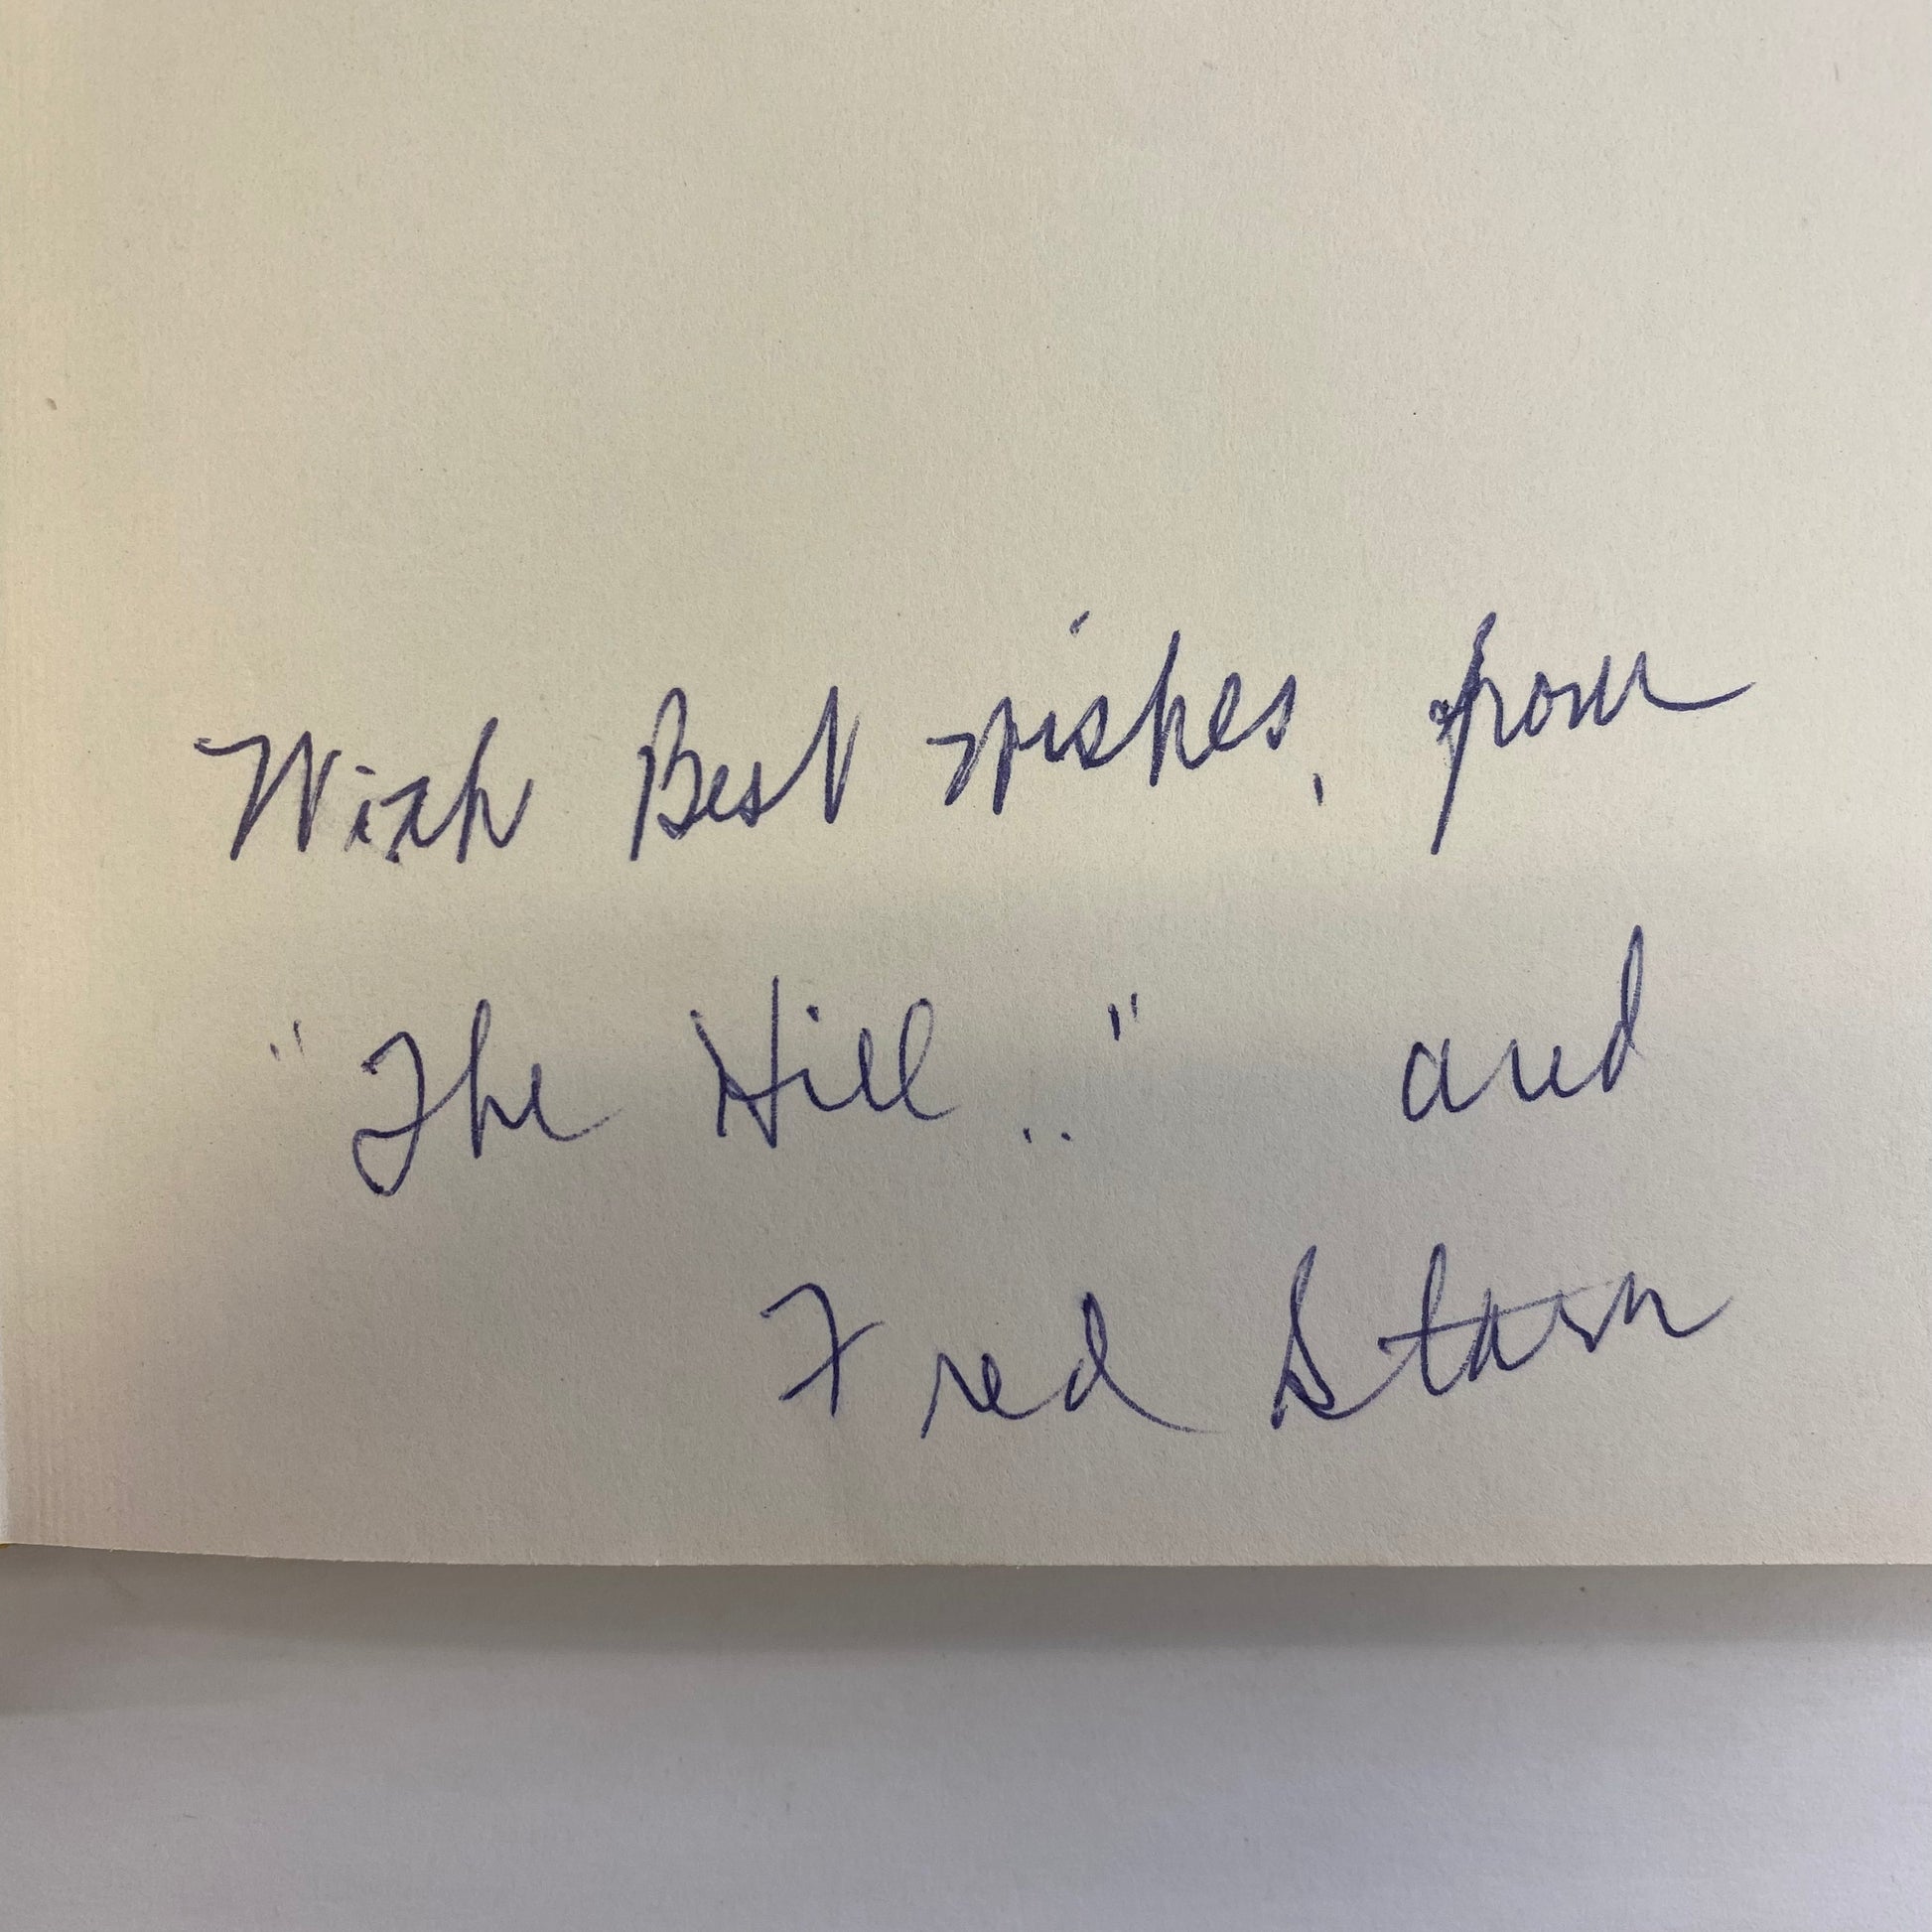 With Best wishes, from
"The Hill.." and
Fred Starr